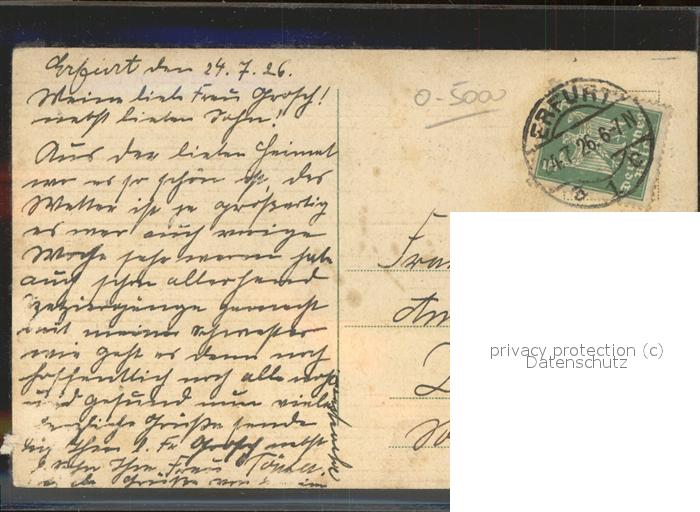 Erfurt den 24.7.26.
Meine liebe Frau Grosch!
nebst lieben Sohn!
Aus der lieben Heimat
wo es so schön ist, das
Wetter ist ja großartig
es war auch vorige
Woche sehr warm habe
auch schon allerhand
Spaziergänge gemacht
mit meiner Schwester
wie geht es denn noch
hoffentlich noch alle wohl
und gesund nun viele
herzliche Grüße sendet
Frl. Grosch nebst
Sohn Ihre Frau
Grüße von
0-5000
ERFURT
24.7.26.6-7N
Deutsches
Frau
privacy protection (c)
Datenschutz